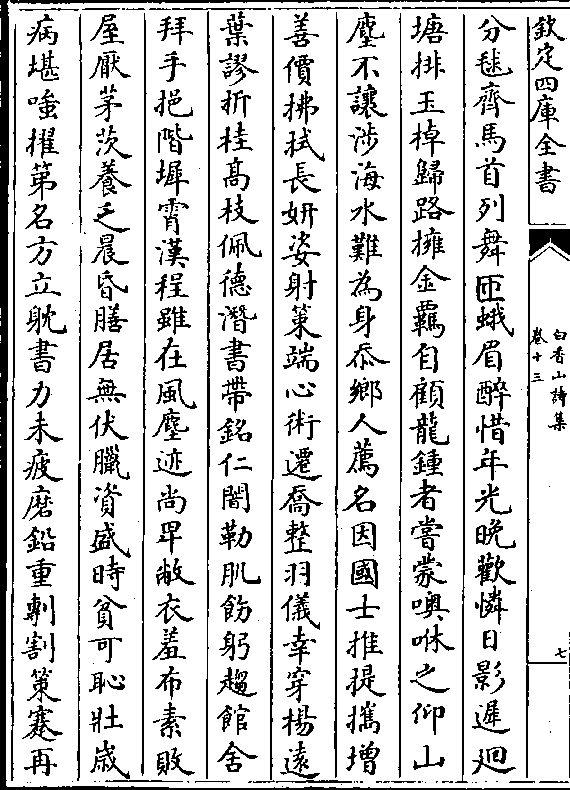 欽定四庫全書
白香山詩集
卷十三
七
分毬齊馬首列舞匝蛾眉醉惜年光晚歡憐日影遲廻
塘排玉棹歸路擁金羈自顧龍鍾者嘗蒙噢咻之仰山
塵不讓涉海水難為身忝鄉人薦名因國士推提攜增
善價拂拭長妍姿射策端心術遷喬整羽儀幸穿楊遠
葉謬折桂高枝佩德潛書帶銘仁闇勒肌飭躬趨館舍
拜手挹階墀霄漢程雖在風塵迹尚卑敝衣羞布素敗
屋厭茅茨養乏晨昏膳居無伏臘資盛時貧可恥壯歲
病堪嗤擢第名方立躭書力未疲磨鉛重剸割策蹇再